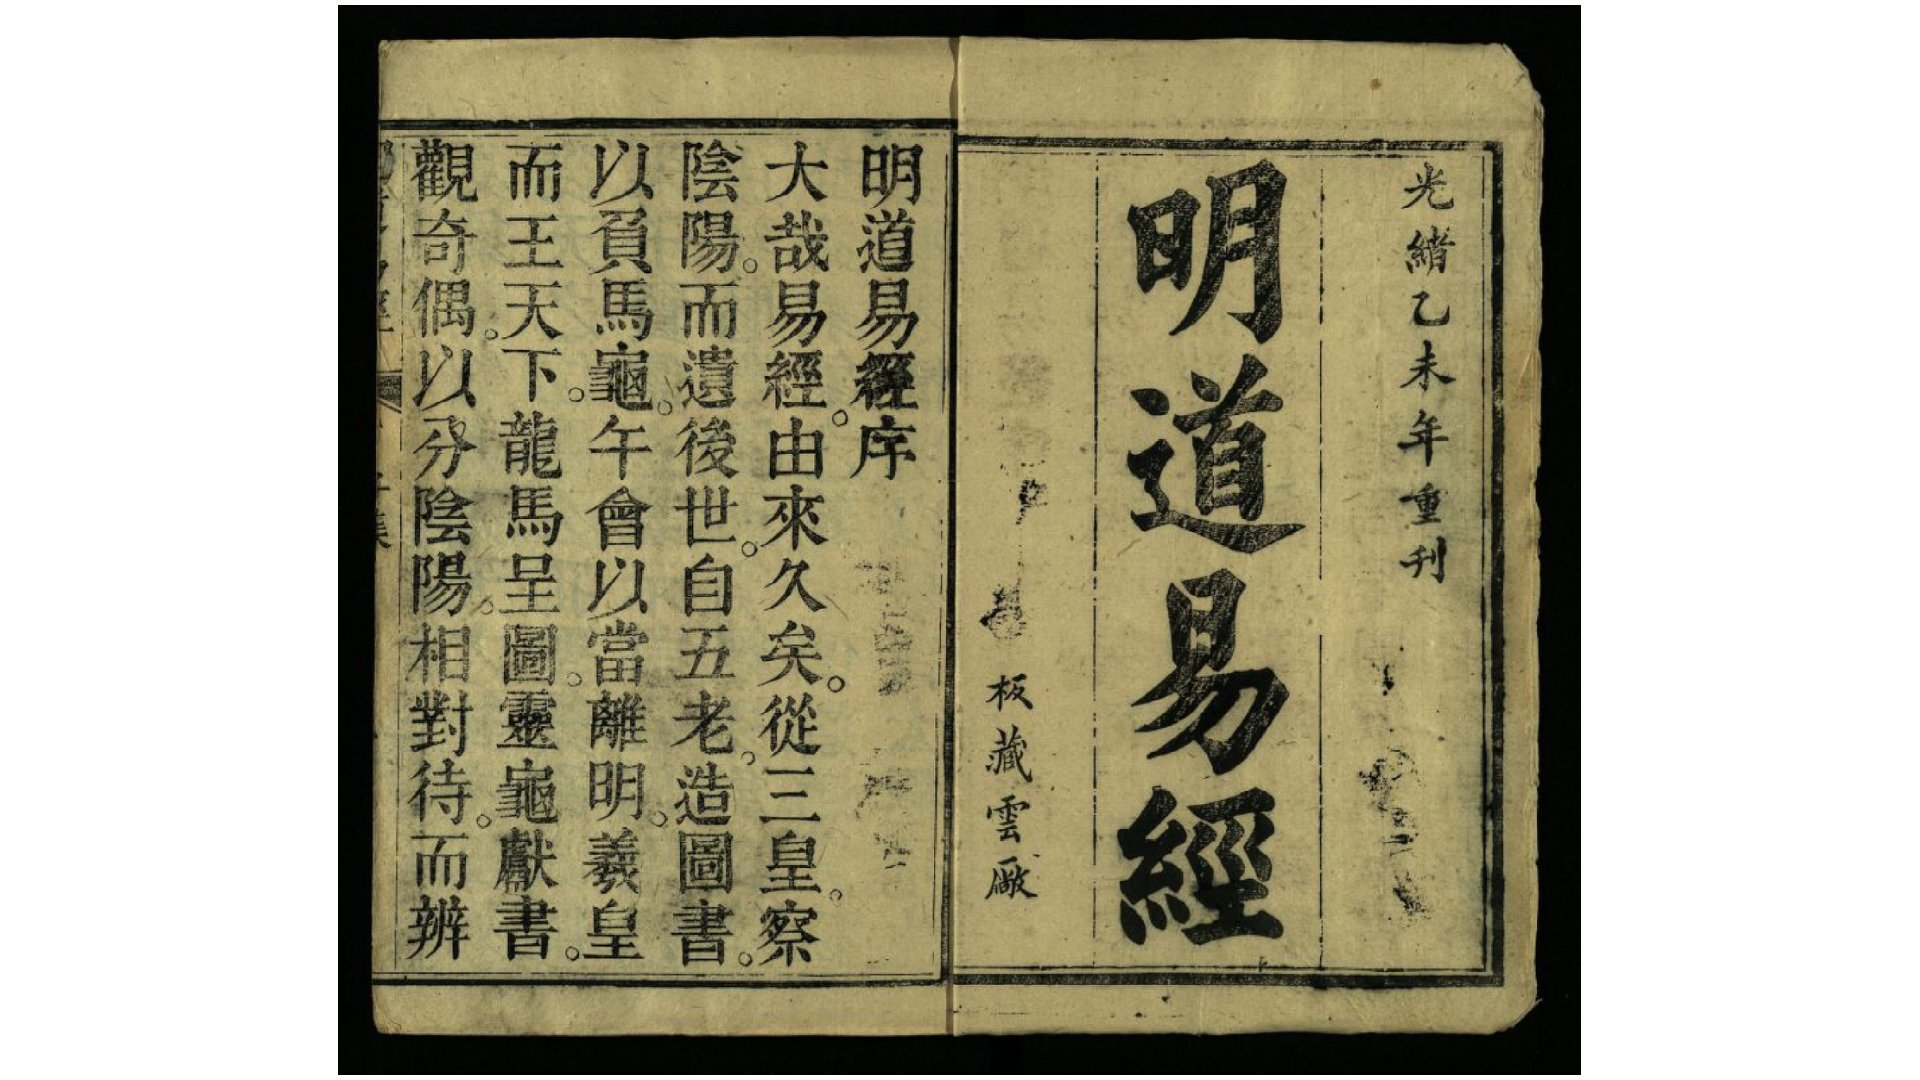 光緒乙未年重刊
明道易經
板藏雲厰
明道易經序
大哉易經。由來久矣。從三皇。察
陰陽。而遺後世。自五老。造圖書。
以負馬龜。午會以當離明。羲皇
而王天下。龍馬呈圖。靈龜獻書。
觀奇偶。以分陰陽。相對待。而辨